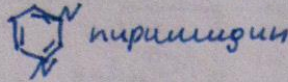 N пиримидин
N